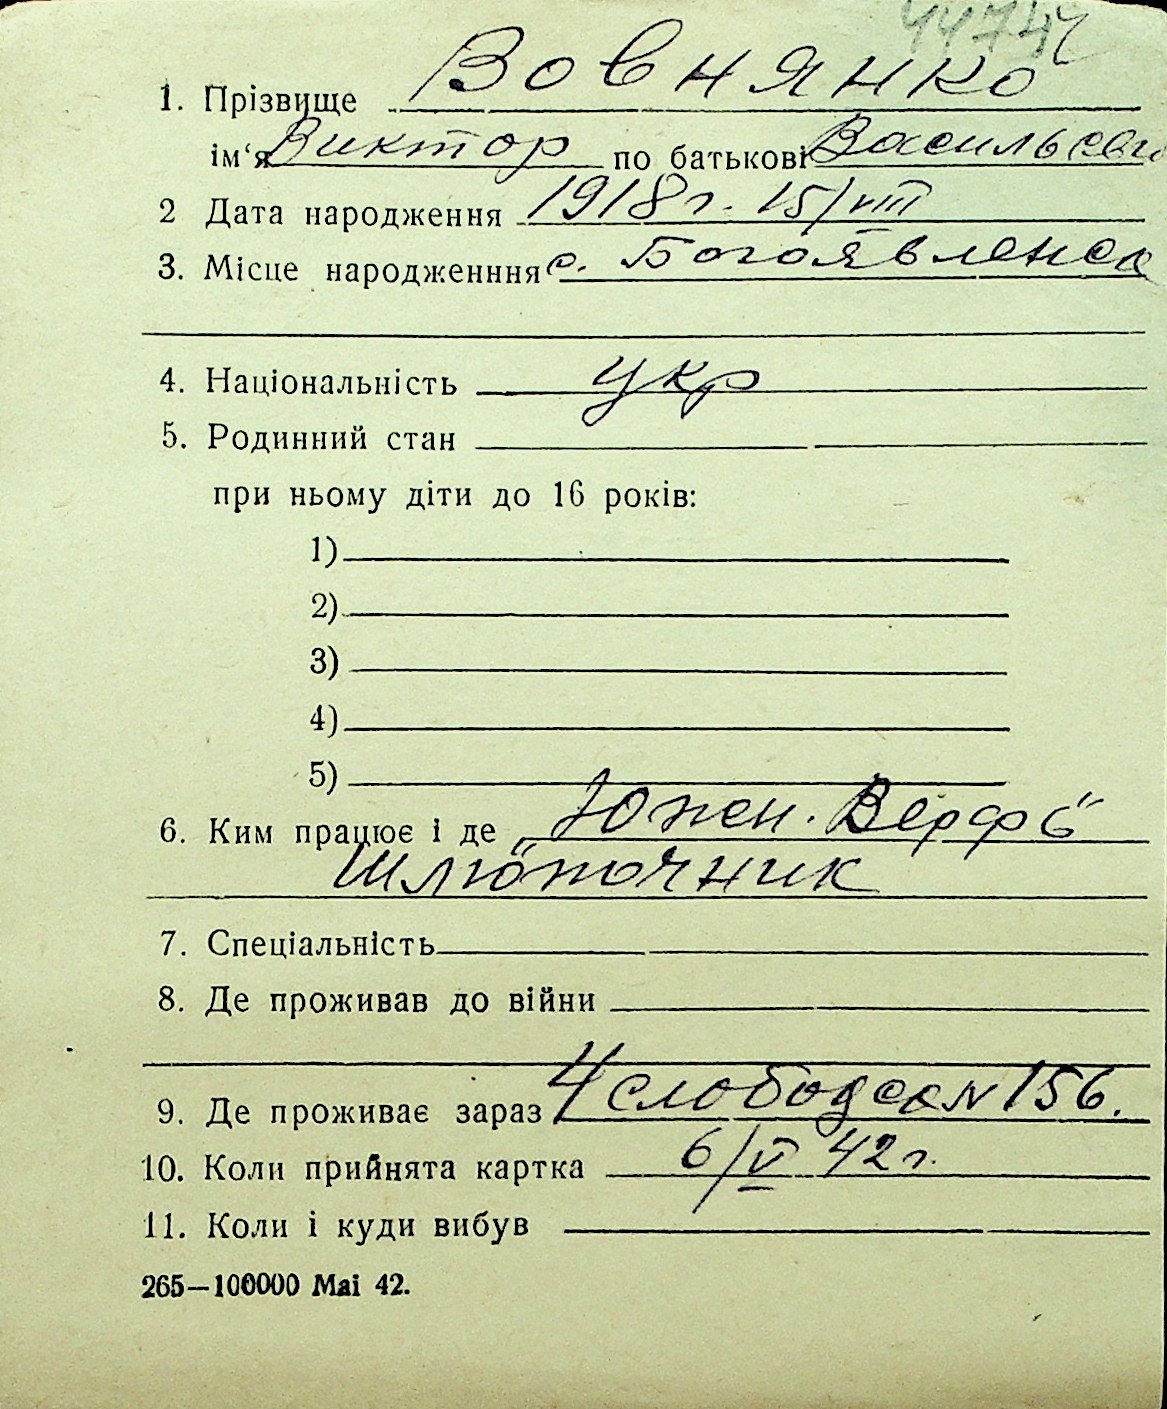 4474
1. Прізвище Вовнянко
ім'я Виктор по батькові Васильев
2 Дата народження 1918 г. 15/VIII
3. Місце народженння с. Богоявленск
4. Національність укр
5. Родинний стан
при ньому діти до 16 років:
1)
2)
3)
4)
5)
6. Ким працює і де „Южн. Верфь"
Шлюпочник
7. Спеціальність
8. Де проживав до війни
9. Де проживає зараз 4 слободск N 156.
10. Коли прийнята картка 6/V 42 г.
11. Коли і куди вибув
265—100000 Mai 42.